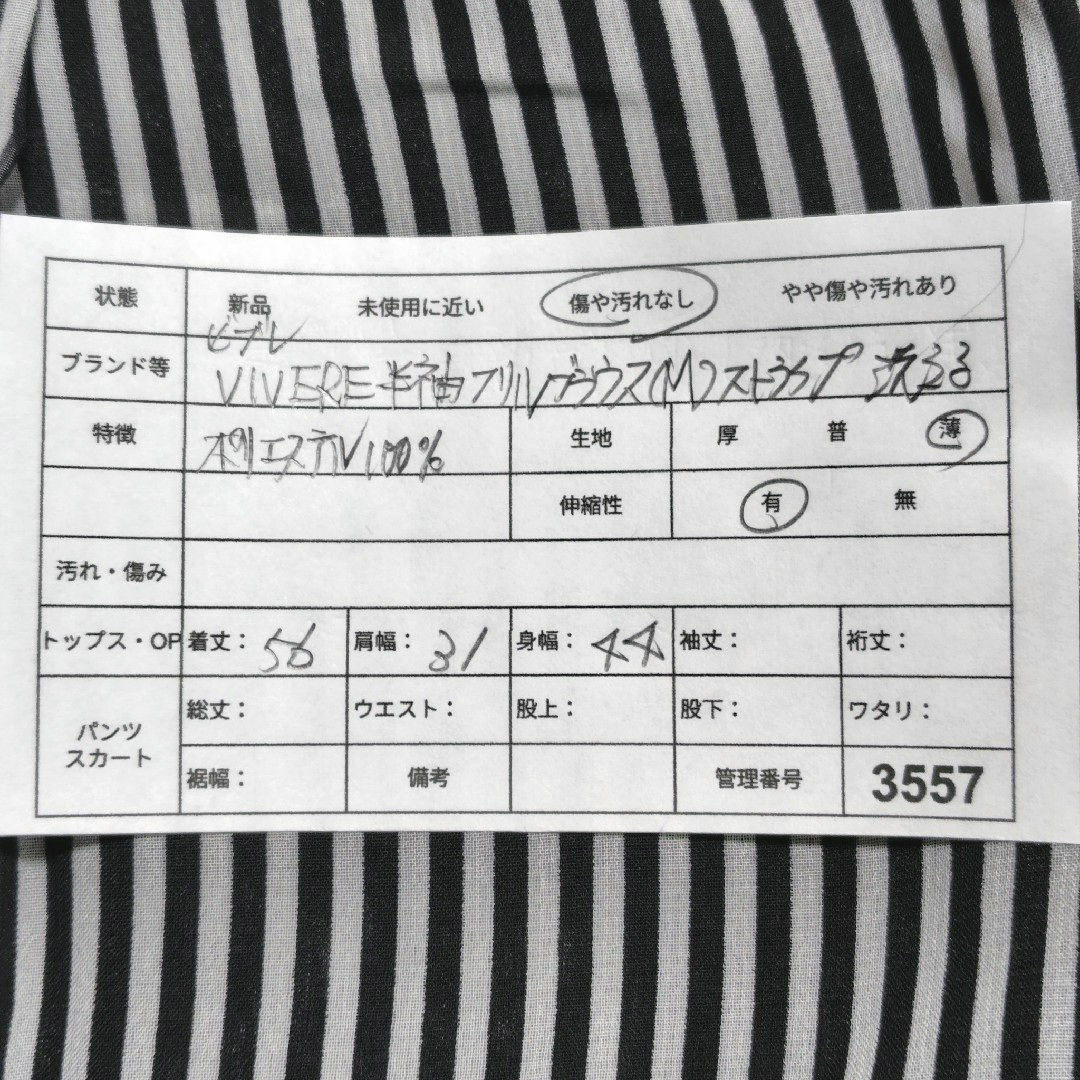 状態 新品 未使用に近い 傷や汚れなし やや傷や汚れあり
ビブレ
ブランド等 VIVERE半袖フリルブラウス(M)ストライプ 洗える
特徴 ポリエステル100% 生地 厚 普 薄
伸縮性 有 無
汚れ・傷み
トップス・OP 着丈: 56 肩幅: 31 身幅: 44 袖丈: 裄丈:
パンツ スカート 総丈: ウエスト: 股上: 股下: ワタリ:
裾幅: 備考 管理番号 3557